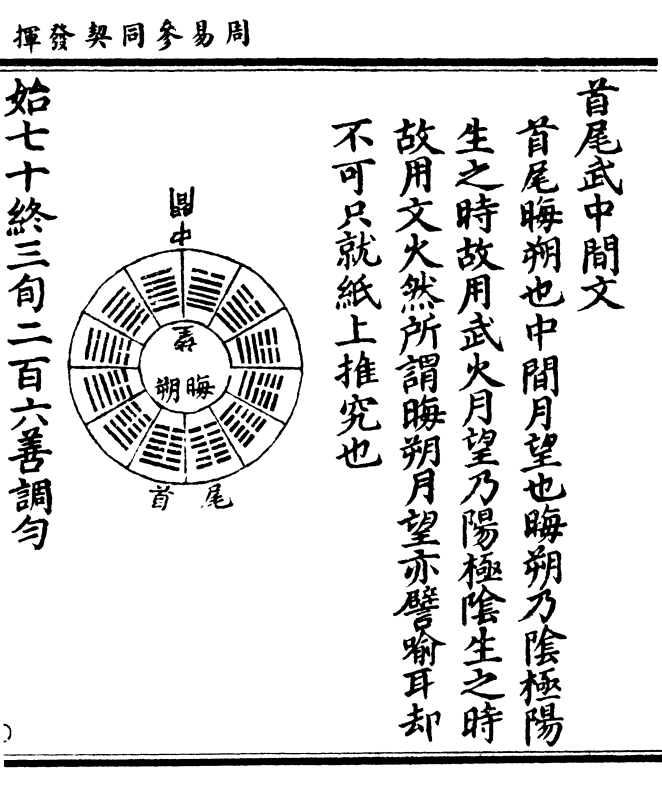 周易參同契發揮
首尾武中間文
首尾晦朔也中間月望也晦朔乃陰極陽
生之時故用武火月望乃陽極陰生之時
故用文火然所謂晦朔月望亦譬喻耳却
不可只就紙上推究也
中間
望
晦朔
尾首
始七十終三旬二百六善調勻